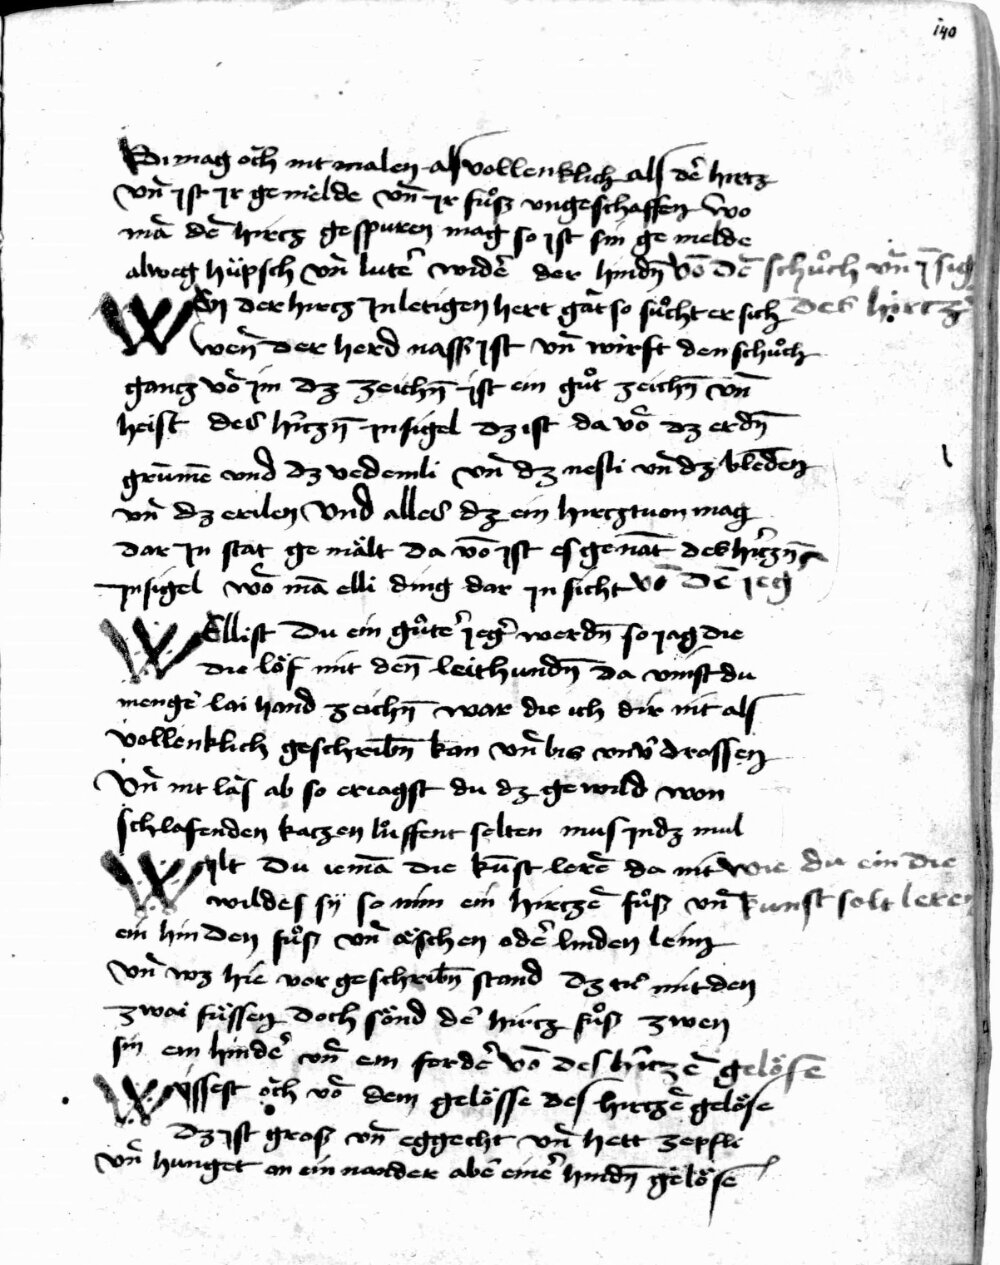 140
Si mag och nit malen als vollenklich als der hircz
vn̄ ist ir gemelde vn̄ ir fůsz vngeschaffen wo
mā dē hircz gespuren mag so ist sin gemelde
alweg hüpsch vn̄ luter wider der hindn̄ võ dē schůch vn̄ jsig
WEn der hircz in letigen hert gat so sůcht er sich des hircz
wen̄ der herd nass ist vn̄ wirft den schůch
gancz võ im dz zeichn̄ ist ein gůt zeichn̄ vn̄
heist des hirczn̄ insigel dz ist da võ dz erdn̄
grim̄e vnd dz vedemli vn̄ dz nesli vn̄ dz blenden
vn̄ dz erilen vnd alles dz ein hircz tuon mag
dar in stat gemält da võ ist es genāt des hirczn̄
insigel wō mā elli ding dar in sicht võ dē jeg
WEllist du ein gůter jeger werdn̄ so jag die
die löf mit den̄ leithundn̄ da vinst du
menger lai hand zeichn̄ war die ich dir nit als
vollenklich geschribn̄ kan vn̄ bis vnv̄drossen
Vn̄ nit läs ab so eriagst du dz gewild won
schlafenden kaczen luffent selten mus in dz mul
WIlt du iemā die kunst lerē da nit wie du ein die
wildes sÿ so nim ein hirczē fůsz vn̄ kunst solt leren
ein hinden fůsz vn̄ äschen oder linden leim
vn̄ wz hie vor geschribn̄ stand dz tů mit den
zwai füssen doch sönd der hircz fůsz zwen
sin ein hinder vn̄ ein forder võ des hirczē gelöse
WIssest och võ dem gelösse des hirczē gelöse
dz ist grosz vn̄ eggecht vn̄ hett zepfli
vn̄ hanget an ein nander aber einer hindn̄ gelöse